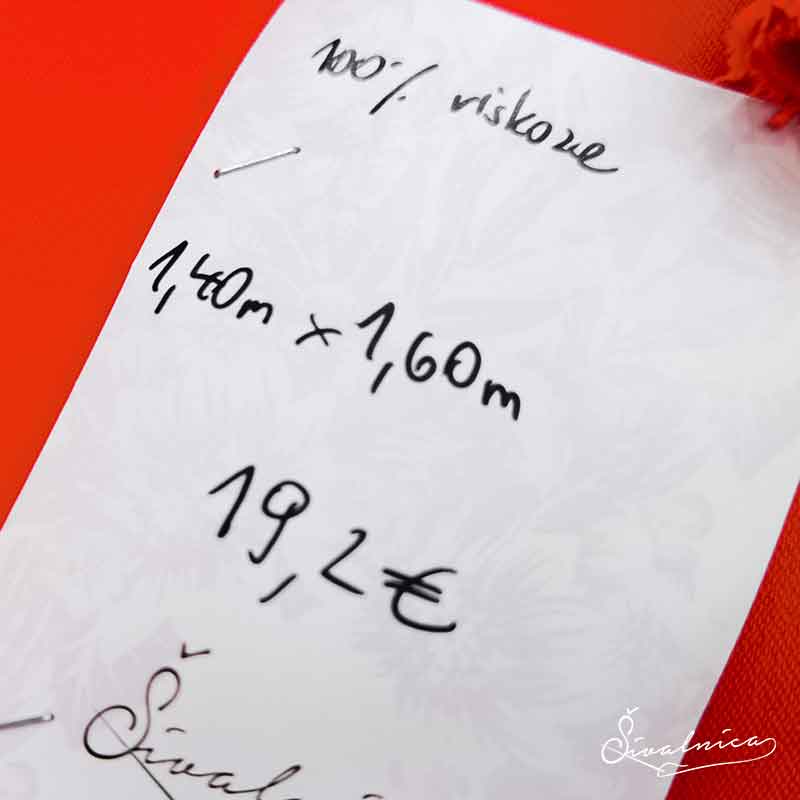 100% viskoze
1,40m x 1,60m
19,2€
Šival
Šivalnica